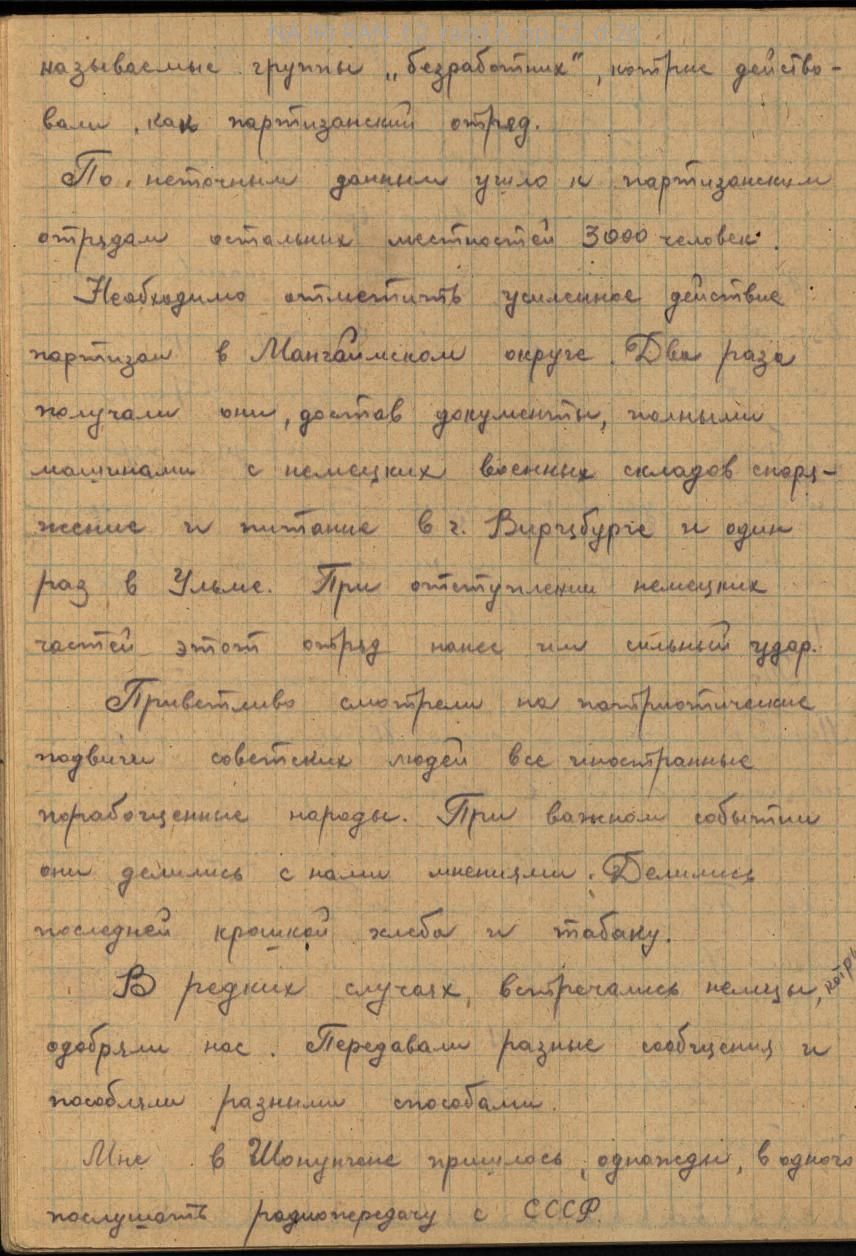 называемые группы „безработних", котрые действо-
вали, как партизанский отряд.
По, неточным данным ушло к партизанским
отрядам остальних местностей 3000 человек.
Необходимо отметить усиленное действие
партизан в Мангаймском округе. Два раза
получали они, достав документы, полными
машинами с немецких военных складов снаря-
жение и питание в г. Вирцбурге и один
раз в Ульме. При отступлении немецких
частей этот отряд нанес им сильный удар.
Приветливо смотрели на патриотические
подвиги советских людей все иностранные
порабощенные народы. При важном событии
они делились с нами мнениями. Делились
последней крошкой хлеба и табаку.
В редких случаях, встречались немцы,
одобряли нас. Передавали разные сообщения и
пособляли разными способами.
Мне в пришлось, однажды, в одного
послушать радиопередачу с СССР.